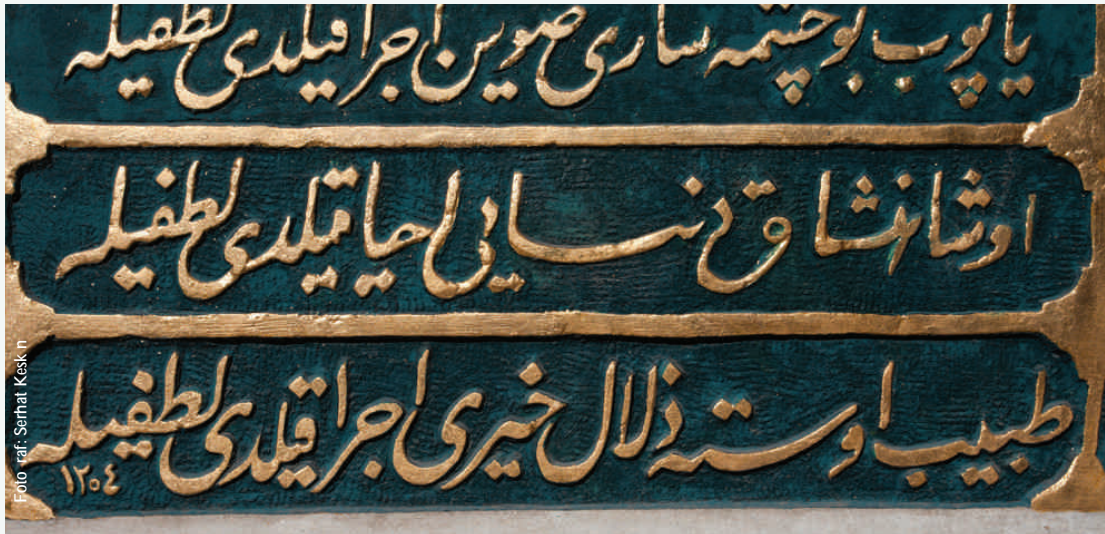 یاپوب بو چشمه ساری صوین اجرا قیلدی لطفیله
او شاهنشاه
احیا قیلدی لطفیله
طبیب اوسته ذلال خیری اجرا قیلدی لطفیله
١٢٠٤
Foto raf: Serhat Kesk n